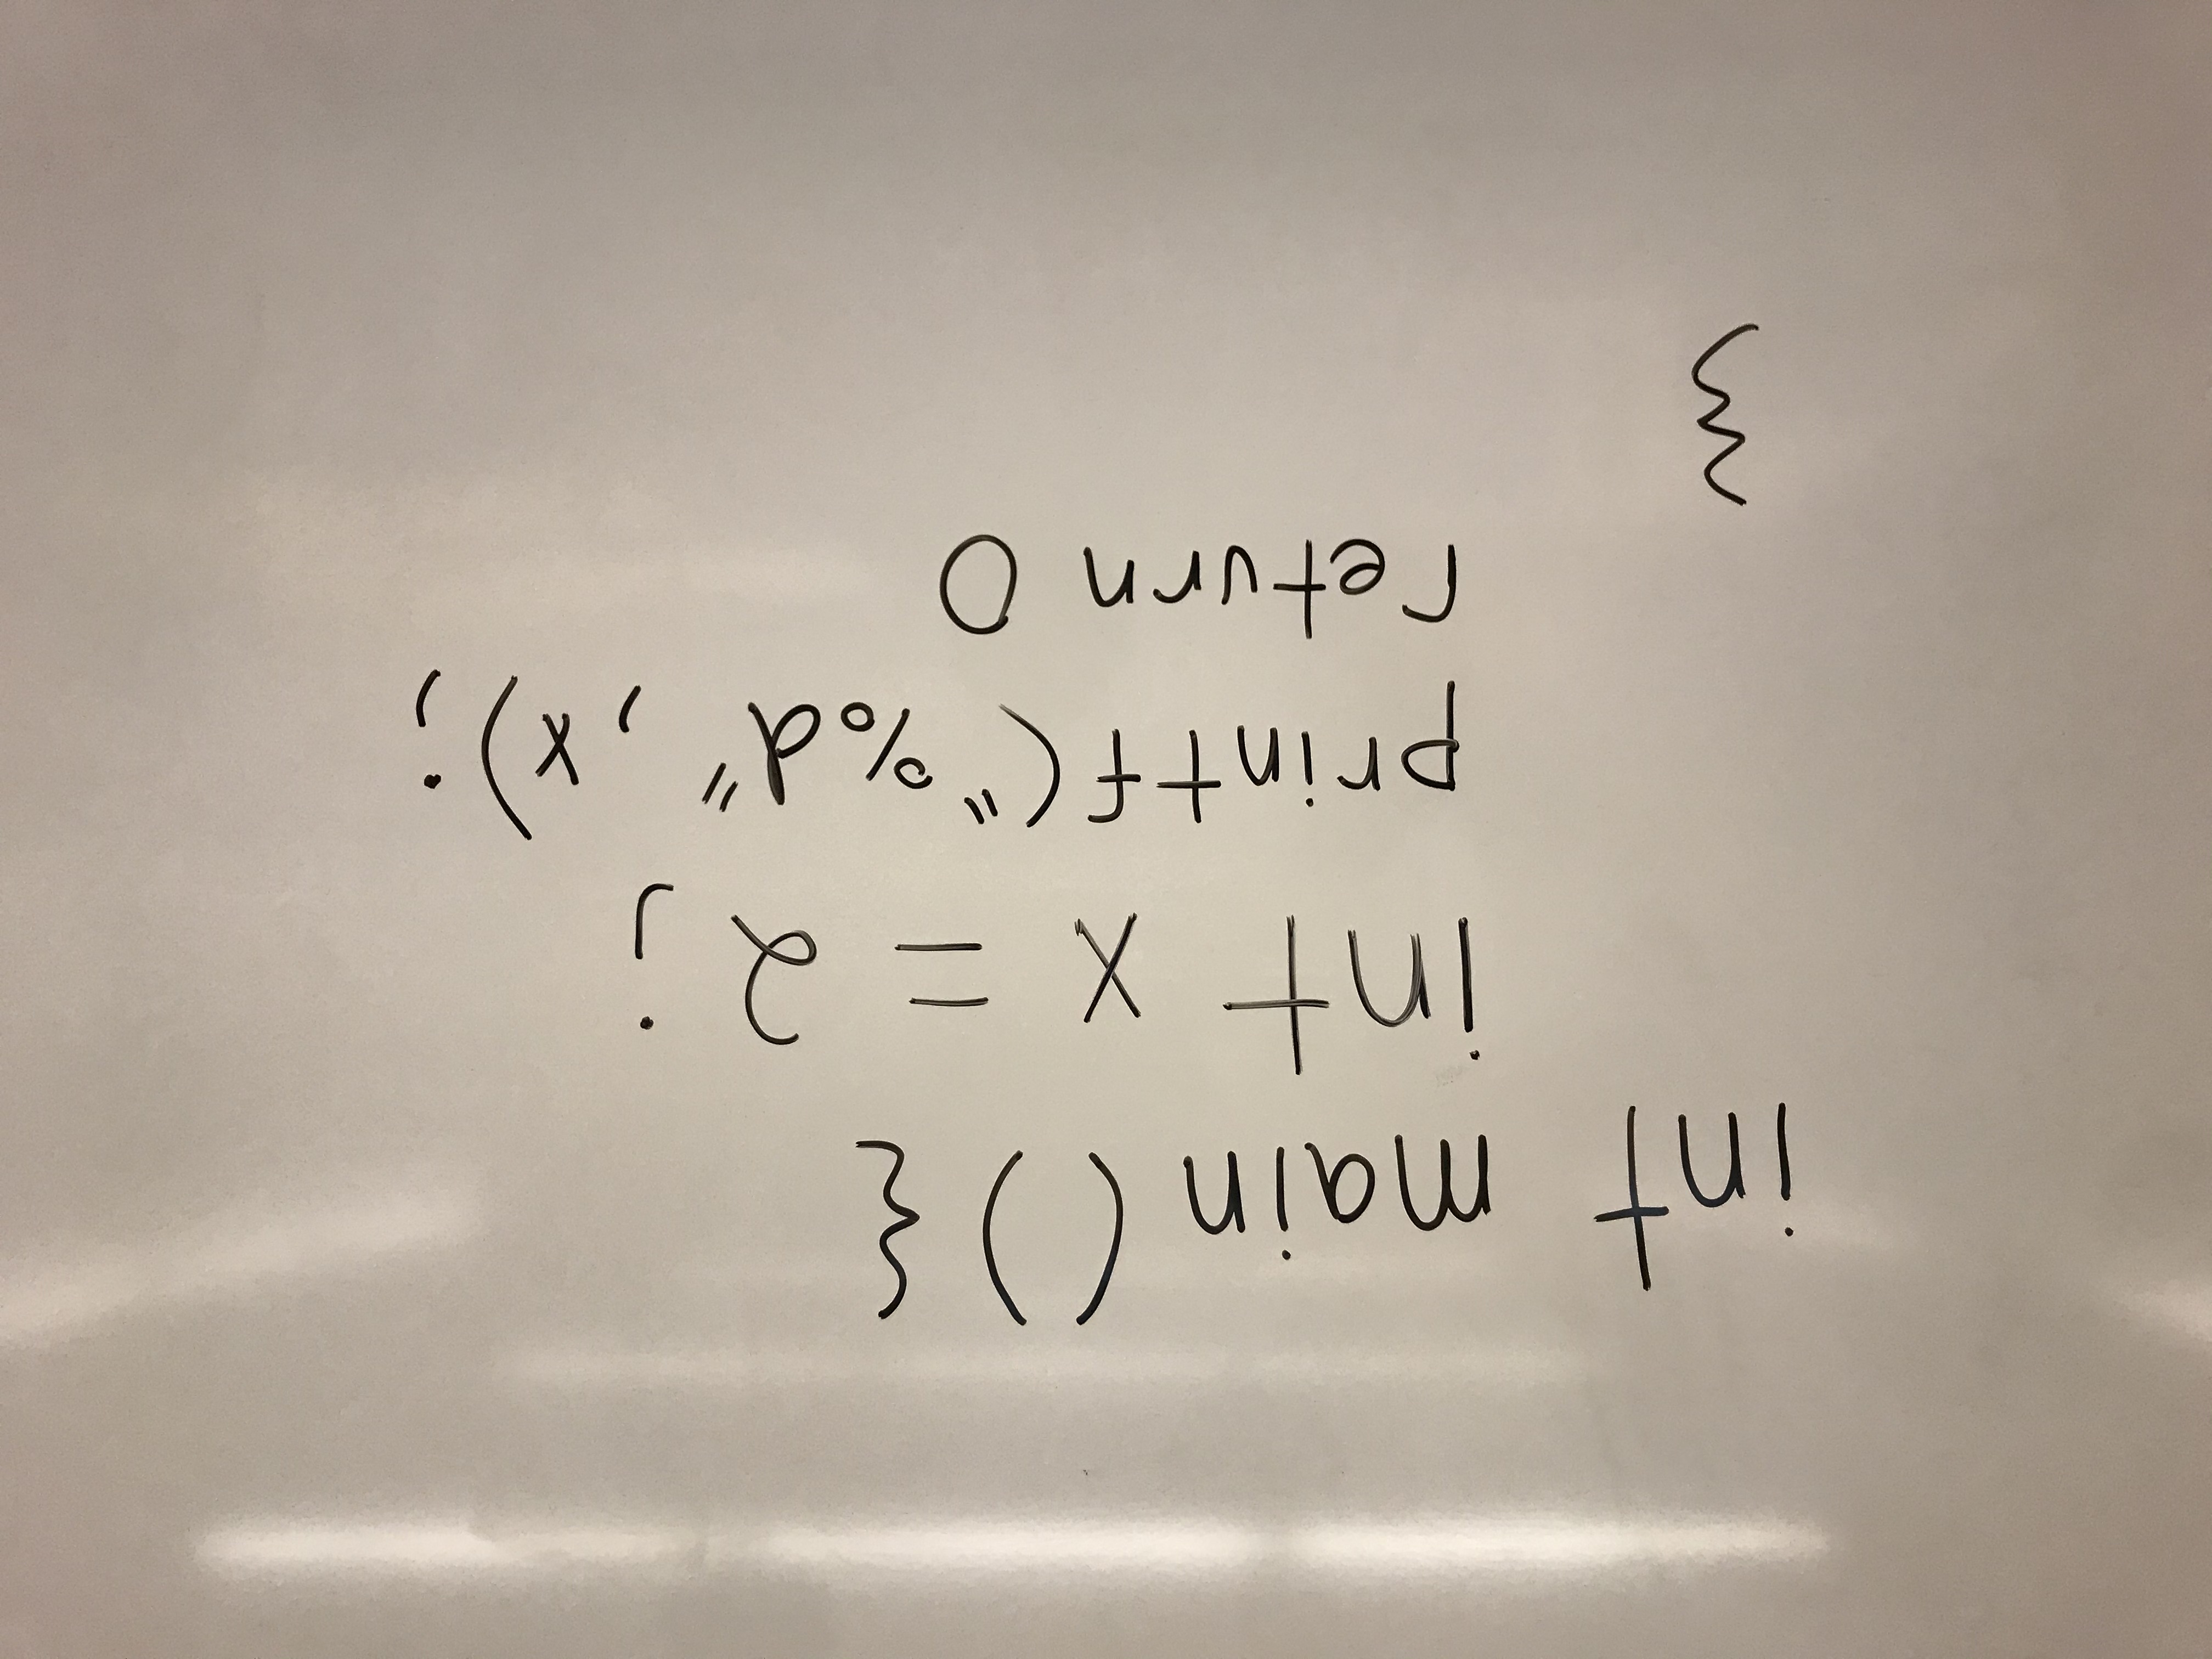 int main(){
int x = 2;
printf("%d", x);
return 0
}